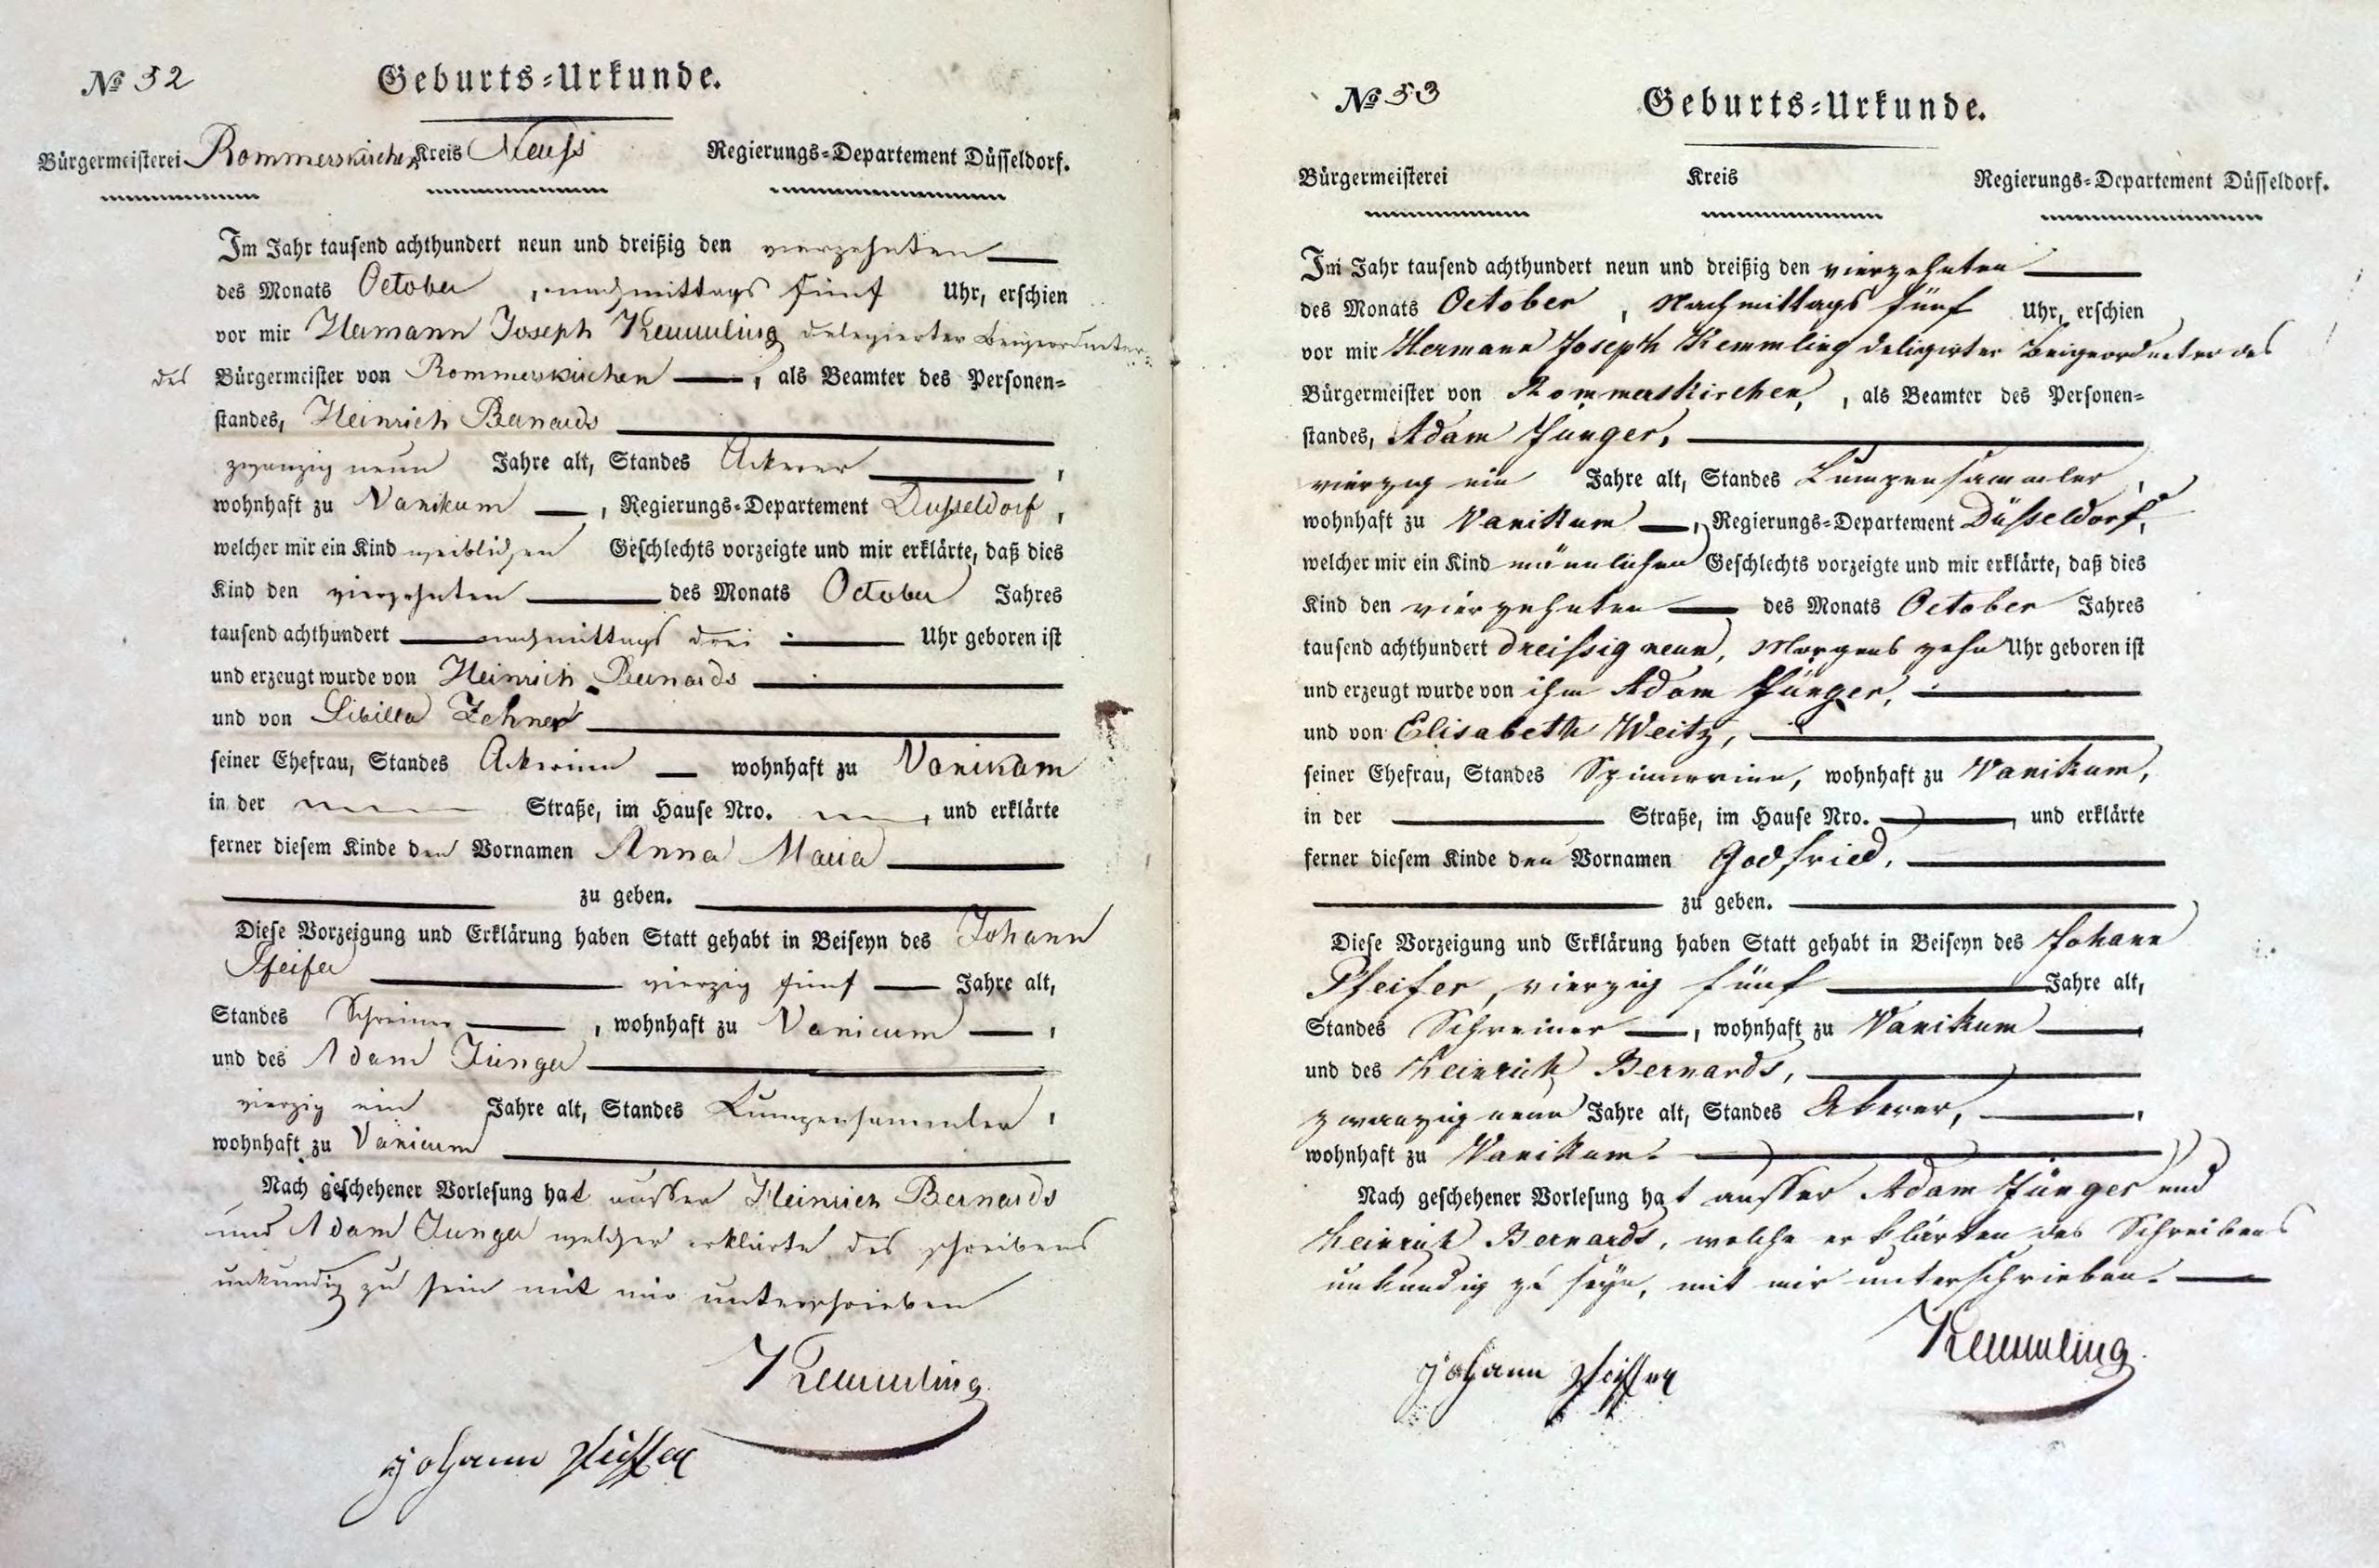 № 52
Geburts-Urkunde.
Bürgermeisterei Rommerskirchen Kreis Neuss Regierungs-Departement Düsseldorf.
Im Jahr tausend achthundert neun und dreißig den vierzehnten
des Monats October , nachmittags fünf Uhr, erschien
vor mir Hermann Joseph Kemmling delegierter Beigeordneter
des Bürgermeister von Rommerskirchen , als Beamter des Personen-
standes, Heinrich Bernards
zwanzig neun Jahre alt, Standes Ackerer ,
wohnhaft zu Vanikum , Regierungs-Departement Dusseldorf ,
welcher mir ein Kind weiblichen Geschlechts vorzeigte und mir erklärte, daß dies
Kind den vierzehnten des Monats October Jahres
tausend achthundert nachmittags drei Uhr geboren ist
und erzeugt wurde von Heinrich Bernards
und von Sibilla Zehner
seiner Ehefrau, Standes Ackerinn wohnhaft zu Vanikam
in der Straße, im Hause Nro. , und erklärte
ferner diesem Kinde den Vornamen Anna Maria
zu geben.
Diese Vorzeigung und Erklärung haben Statt gehabt in Beiseyn des Johann
Pfeifer vierzig fünf Jahre alt,
Standes Schreiner , wohnhaft zu Vanicum ,
und des Adam Jünger
vierzig ein Jahre alt, Standes Lumpensammler ,
wohnhaft zu Vanicum
Nach geschehener Vorlesung hat ausser Heinrich Bernards
und Adam Junger welcher erklärte des schreibens
unkundig zu sein mit mir unterschrieben
Kemmling
Johann Pfeiffer
№ 53
Geburts-Urkunde.
Bürgermeisterei Kreis Regierungs-Departement Düsseldorf.
Im Jahr tausend achthundert neun und dreißig den vierzehnten
des Monats October , Nachmittags fünf Uhr, erschien
vor mir Hermann Joseph Kemmling deligirter Beigeordneter des
Bürgermeister von Rommerskirchen, , als Beamter des Personen-
standes, Adam Jünger,
vierzig ein Jahre alt, Standes Lumpensammler ,
wohnhaft zu Vanikum , Regierungs-Departement Düsseldorf,
welcher mir ein Kind männlichen Geschlechts vorzeigte und mir erklärte, daß dies
Kind den vierzehnten des Monats October Jahres
tausend achthundert dreissig neun, Morgens zehn Uhr geboren ist
und erzeugt wurde von ihm Adam Jünger,
und von Elisabeth Weitz,
seiner Ehefrau, Standes Spinnerinn, wohnhaft zu Vanikum,
in der Straße, im Hause Nro. , und erklärte
ferner diesem Kinde den Vornamen Godfried,
zu geben.
Diese Vorzeigung und Erklärung haben Statt gehabt in Beiseyn des Johann
Pfeifer, vierzig fünf Jahre alt,
Standes Schreiner , wohnhaft zu Vanikum
und des Heinrich Bernards,
zwanzig neun Jahre alt, Standes Akerer, ,
wohnhaft zu Vanikum.
Nach geschehener Vorlesung hat ausser Adam Jünger und
Heinrich Bernards, welche erklärten des Schreibens
unkundig zu seyn, mit mir unterschrieben.
Kemmling
Johann Pfeiffer